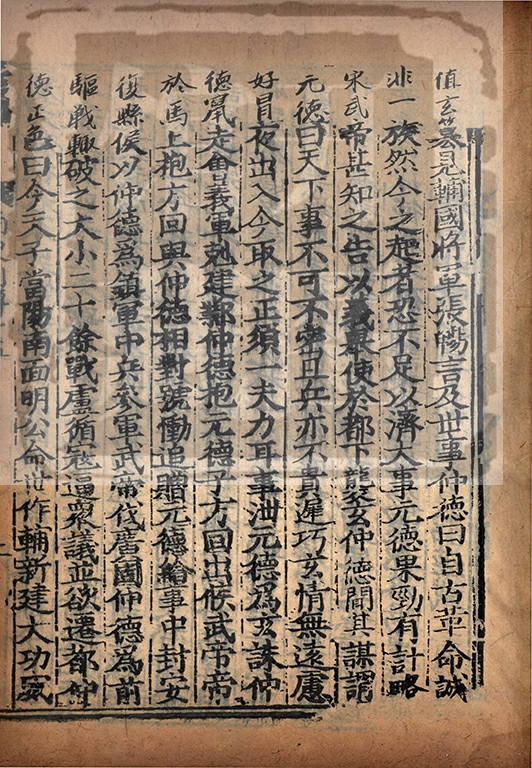 值玄篡見輔國將軍張暢言及世事仲德曰自古革命誠
非一族然今之起者恐不足以濟大事元德果勁有計略
宋武帝甚知之告以義舉使於都下襲玄仲德聞其謀謂
元德曰天下事不可不密且兵亦不貴遲巧玄情無遠慮
好冒夜出入今取之正須一夫力耳事泄元德為玄誅仲
德竄走會義軍剋建鄴仲德抱元德子方回出候武帝帝
於馬上抱方回與仲德相對號慟追贈元德給事中封安
復縣侯以仲德為鎮軍中兵參軍武帝伐廣固仲德為前
驅戰輒破之大小二十餘戰盧循冦逼衆議並欲遷都仲
德正色曰今天子當陽南面明公命世作輔新建大功威